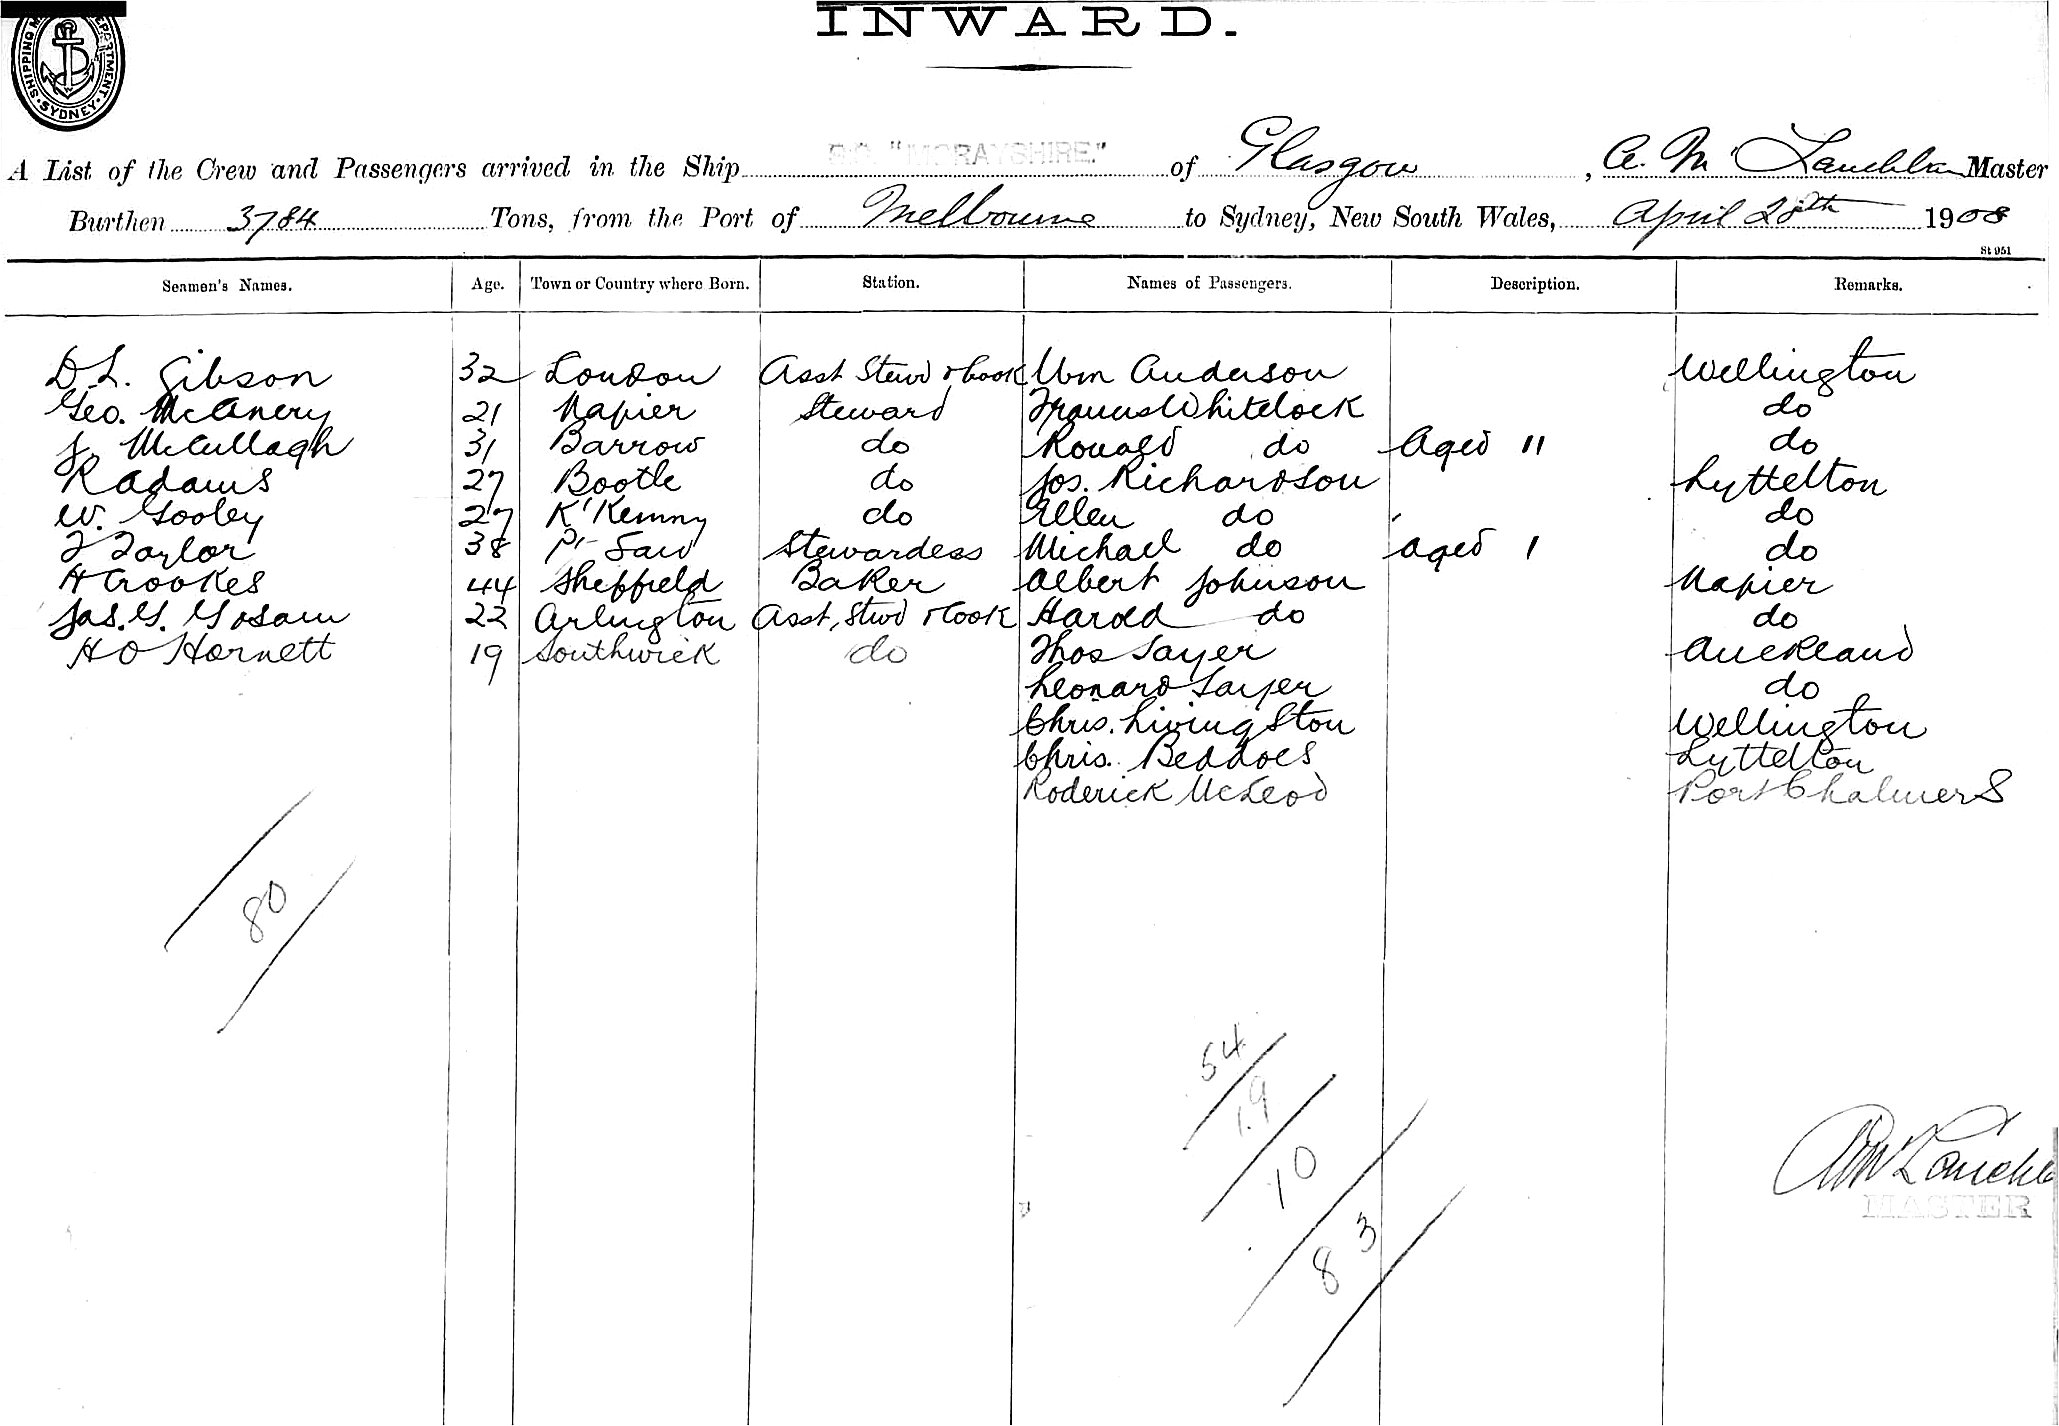 INWARD.
SHIPPING DEPARTMENT. SYDNEY
A List of the Crew and Passengers arrived in the Ship S.S. "MORAYSHIRE." of Glasgow, A. McLauchlan Master
Burthen 3784 Tons, from the Port of Melbourne to Sydney, New South Wales, April 28th 1908
St 951
Seamen's Names. Age. Town or Country where Born. Station. Names of Passengers. Description. Remarks.
D L. Gibson 32 London Asst Stewd & Cook Wm Anderson Wellington
Geo. McAnery 21 Napier Steward Francis Whitelock do
J. McCullagh 31 Barrow do Ronald do Aged 11 do
R Adams 27 Bootle do Jos. Richardson Lyttelton
W. Gooley 27 do Ellen do do
Taylor 38 Stewardess Michael do aged 1 do
H Crookes 44 Sheffield Baker Albert Johnson Napier
Jas. G. 22 Arlington Asst, Stwd & Cook Harold do do
H O Hornett 19 Southwick do Thos Sayer Auckland
Leonard Sayer do
Chris. Livingston Wellington
Chris. Beddoes Lyttelton
Roderick McLeod Port Chalmers
80
54
19
10
83
MASTER